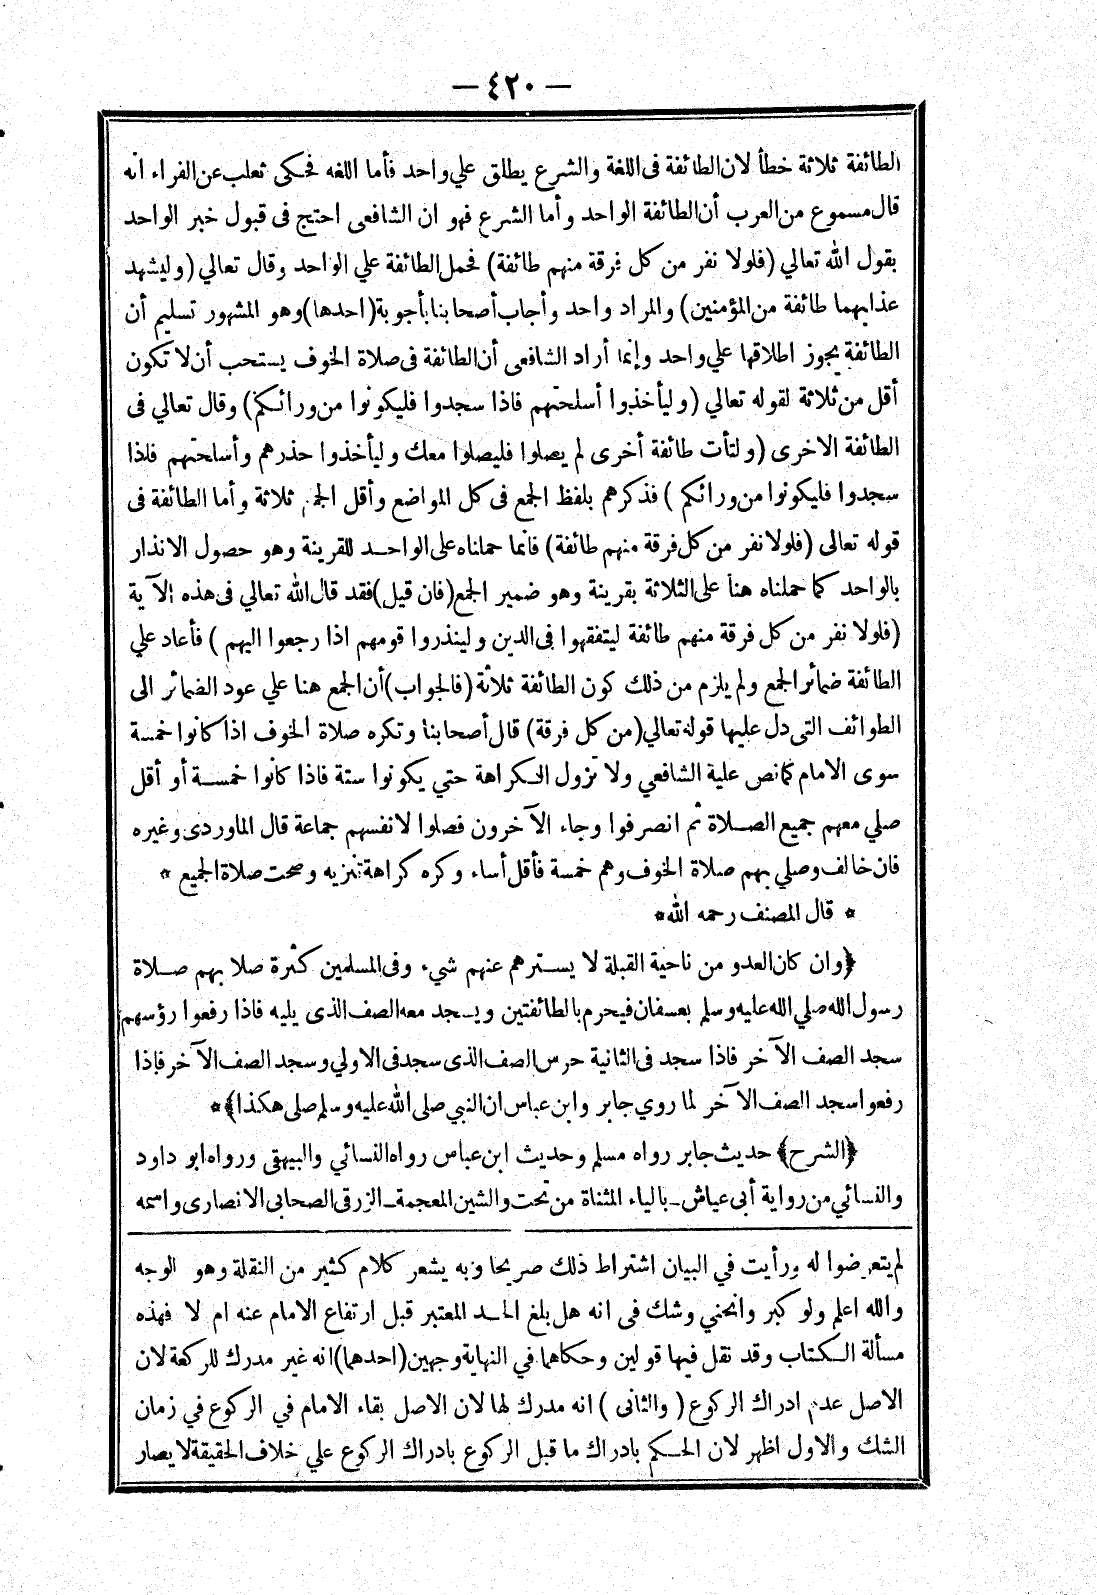 — ٤٢٠ —
الطائفة ثلاثة خطأ لان الطائفة فى اللغة والشرع يطلق علي واحد فأما اللغه فحكى ثعلب عن الفراء انه
قال مسموع من العرب أن الطائفة الواحد وأما الشرع فهو ان الشافعى احتج فى قبول خبر الواحد
بقول الله تعالي (فلولا نفر من كل فرقة منهم طائفة) فحمل الطائفة علي الواحد وقال تعالي (وليشهد
عذابهما طائفة من المؤمنين) والمراد واحد وأجاب أصحابنا بأجوبة (احدها) وهو المشهور تسليم أن
الطائفة يجوز اطلاقها علي واحد وإنما أراد الشافعى أن الطائفة فى صلاة الخوف يستحب أن لا تكون
أقل من ثلاثة لقوله تعالي (وليأخذوا أسلحتهم فاذا سجدوا فليكونوا من ورائكم) وقال تعالي فى
الطائفة الاخرى (ولتأت طائفة أخرى لم يصلوا فليصلوا معك وليأخذوا حذرهم وأسلحتهم فلذا
سجدوا فليكونوا من ورائكم) فذكرهم بلفظ الجمع فى كل المواضع وأقل الجمع ثلاثة وأما الطائفة فى
قوله تعالى (فلولا نفر من كل فرقة منهم طائفة) فانما حملناه على الواحد للقرينة وهو حصول الانذار
بالواحد كما حملناه هنا على الثلاثة بقرينة وهو ضمير الجمع (فان قيل) فقد قال الله تعالي فى هذه الآية
(فلولا نفر من كل فرقة منهم طائفة ليتفقهوا فى الدين ولينذروا قومهم اذا رجعوا اليهم) فأعاد علي
الطائفة ضمائر الجمع ولم يلزم من ذلك كون الطائفة ثلاثة (فالجواب) أن الجمع هنا علي عود الضمائر الى
الطوائف التى دل عليها قوله تعالي (من كل فرقة) قال أصحابنا وتكره صلاة الخوف اذا كانوا خمسة
سوى الامام كما نص علية الشافعي ولا تزول الكراهة حتي يكونوا ستة فاذا كانوا خمسة أو أقل
صلي معهم جميع الصلاة ثم انصرفوا وجاء الآخرون فصلوا لانفسهم جماعة قال الماوردى وغيره
فان خالف وصلي بهم صلاة الخوف وهم خمسة فأقل أساء وكره كراهة تنزيه وصحت صلاة الجميع *
* قال المصنف رحمه الله *
﴿وان كان العدو من ناحية القبلة لا يسترهم عنهم شيء وفى المسلمين كثرة صلا بهم صلاة
رسول الله صلي الله عليه وسلم بعسفان فيحرم بالطائفتين ويسجد معه الصف الذى يليه فاذا رفعوا رؤسهم
سجد الصف الآخر فاذا سجد فى الثانية حرس الصف الذى سجد فى الاولي وسجد الصف الآخر فإذا
رفعوا سجد الصف الآخر لما روي جابر وابن عباس ان النبي صلى الله عليه وسلم صلى هكذا﴾ *
﴿الشرح﴾ حديث جابر رواه مسلم وحديث ابن عباس رواه النسائي والبيهقى ورواه ابو داود
والنسائي من رواية أبى عياش ـ بالياء المثناة من تحت والشين المعجمة ـ الزرقى الصحابى الانصارى واسمه
لم يتعرضوا له ورأيت في البيان اشتراط ذلك صريحا وبه يشعر كلام كثير من النقلة وهو الوجه
والله اعلم ولو كبر وانحني وشك فى انه هل بلغ الحد المعتبر قبل ارتفاع الامام عنه ام لا فهذه
مسألة الكتاب وقد نقل فيها قولين وحكاهما في النهاية وجهين (احدهما) انه غير مدرك للركعة لان
الاصل عدم ادراك الركوع (والثانى) انه مدرك لها لان الاصل بقاء الامام في الركوع في زمان
الشك والاول اظهر لان الحكم بادراك ما قبل الركوع بادراك الركوع علي خلاف الحقيقة لا يصار